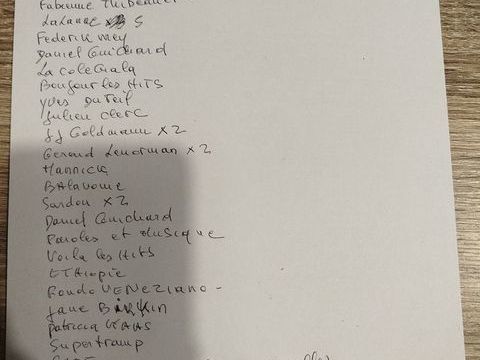 Fabienne Thibeault
Lalanne S
Federik mey
Daniel Guichard
La coleGiala
Bonjour les HiTS
Yves Duteil
Julien Clerc
JJ Goldmann x2
Gerard Lenorman x2
Mannick
BAlavoine
Sardou x2
Daniel Guichard
Paroles et Musique
Voila les HiTS
ETHiopie
RondoVENEZiano -
Jane BiRKin
Patricia KAAS
Supertramp